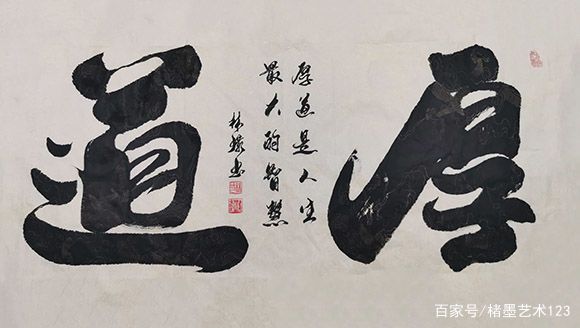 厚道
厚道是人生
最大的智慧
百家号/楮墨艺术123